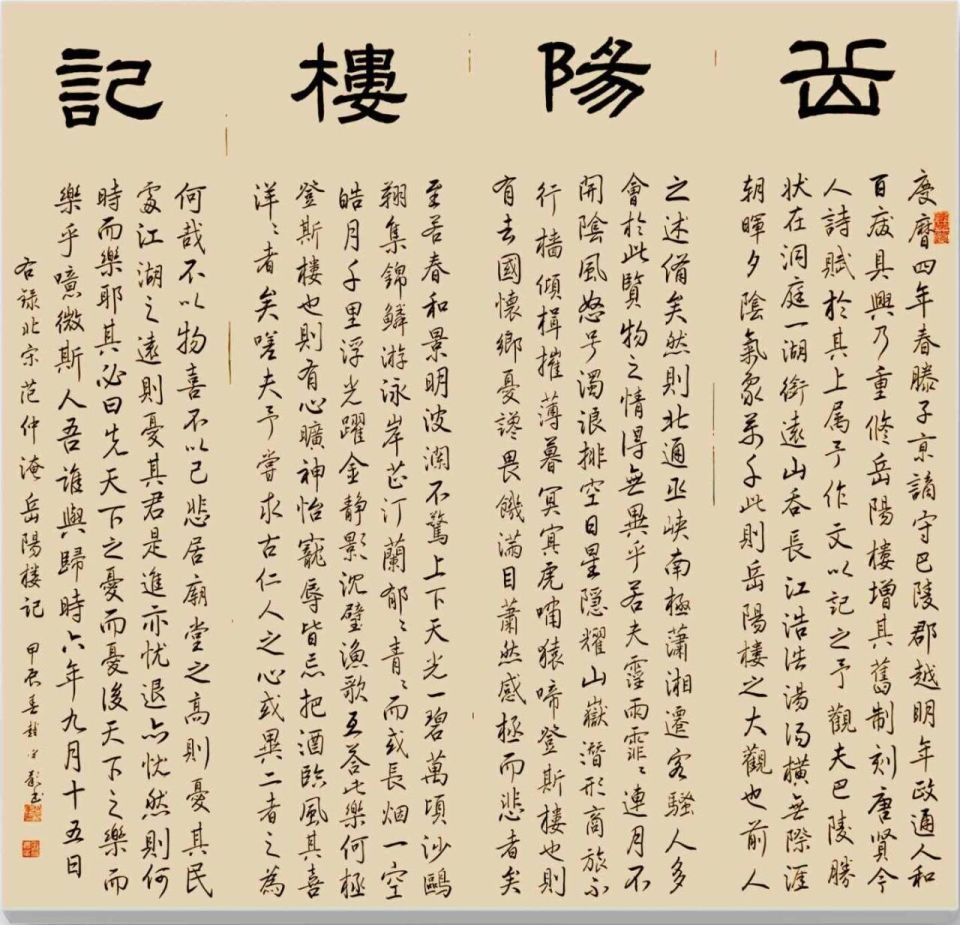 岳陽樓記
慶曆四年春滕子京謫守巴陵郡越明年政通人和
百廢具興乃重修岳陽樓增其舊制刻唐賢今
人詩賦於其上属予作文以記之予觀夫巴陵勝
狀在洞庭一湖銜遠山吞長江浩浩湯湯橫無際涯
朝暉夕陰氣象萬千此則岳陽樓之大觀也前人
之述備矣然則北通巫峽南極瀟湘遷客騷人多
會於此覽物之情得無異乎若夫霪雨霏々連月不
開陰風怒号濁浪排空日星隱耀山嶽潛形商旅不
行檣傾楫摧薄暮冥冥虎嘯猿啼登斯樓也則
有去國懷鄉憂讒畏譏滿目蕭然感極而悲者矣
至若春和景明波瀾不驚上下天光一碧萬頃沙鷗
翔集錦鱗游泳岸芷汀蘭郁々青々而或長烟一空
皓月千里浮光躍金靜影沈璧漁歌互答此樂何極
登斯樓也則有心曠神怡寵辱皆忘把酒臨風其喜
洋々者矣嗟夫予嘗求古仁人之心或異二者之為
何哉不以物喜不以己悲居廟堂之高則憂其民
處江湖之遠則憂其君是進亦忧退亦忧然則何
時而樂耶其必曰先天下之憂而憂後天下之樂而
樂乎噫微斯人吾誰與歸時六年九月十五日
右錄北宋范仲淹岳陽樓記 甲辰春